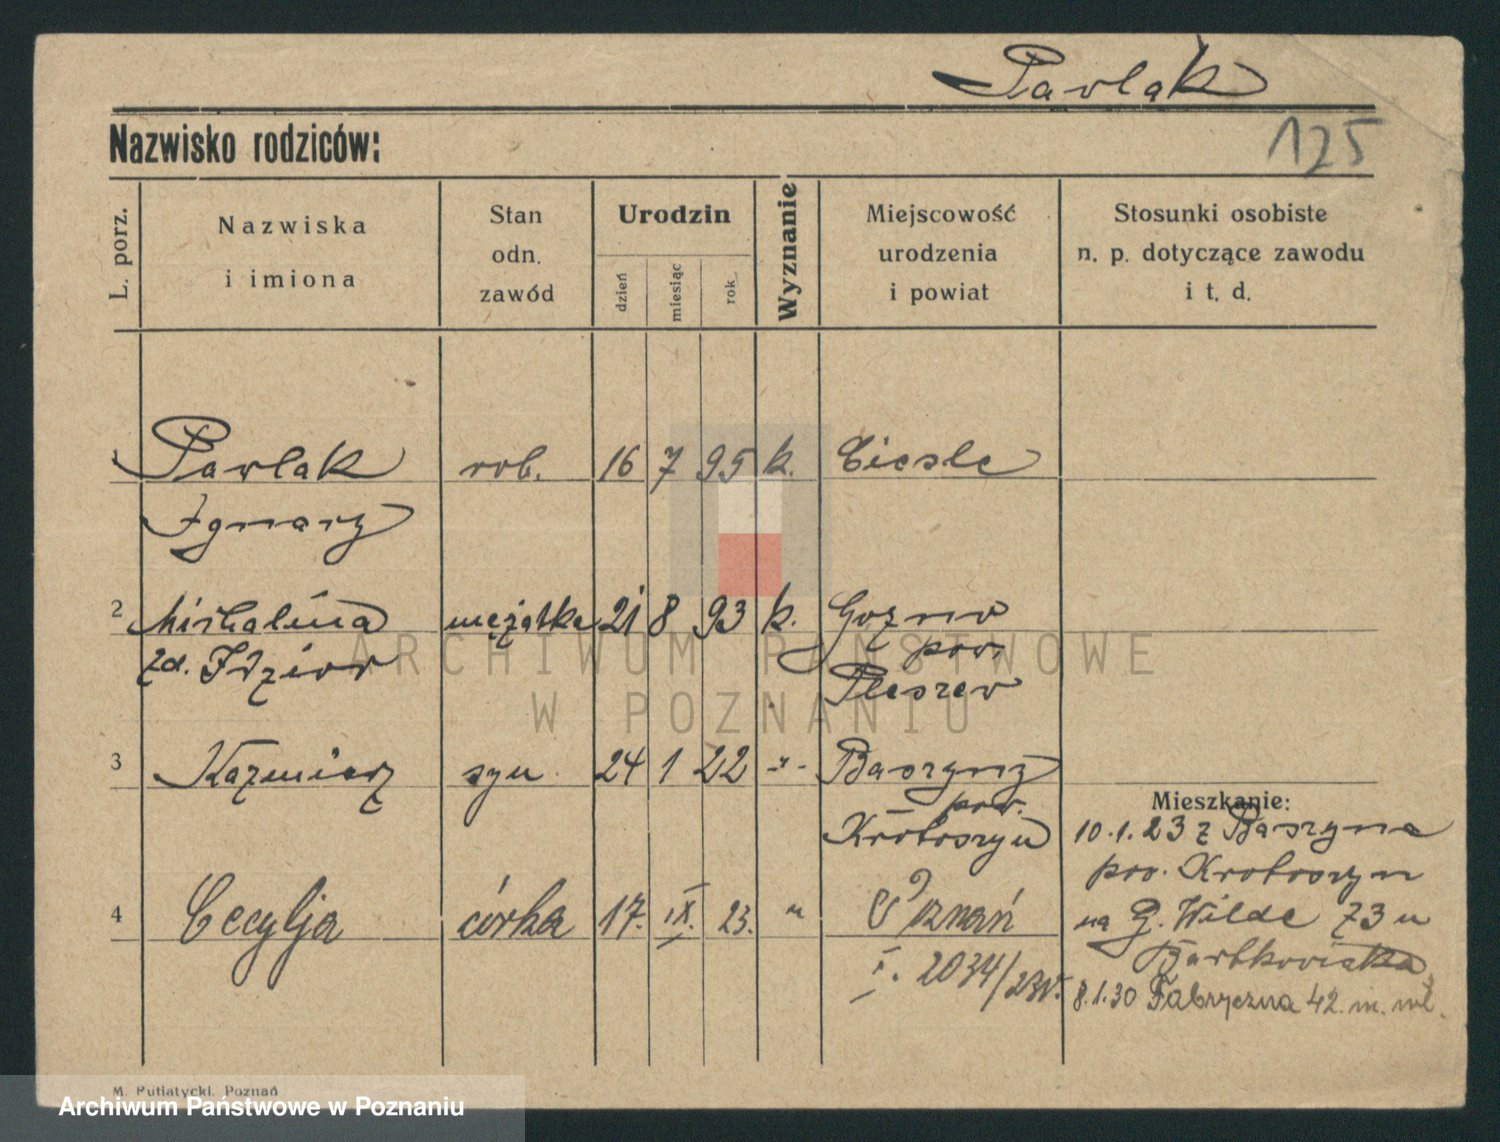 Pawlak
Nazwisko rodziców:
125
L. porz.
Nazwiska
i imiona
Stan
odn.
zawód
Urodzin
dzień
miesiąc
rok
Wyznanie
Miejscowość
urodzenia
i powiat
Stosunki osobiste
n. p. dotyczące zawodu
i t. d.
1 Pawlak rob. 16 7 95 k. Ciesle
Ignacy
2 Michalina mężatka 21 8 93 k.
zd. Idzior pow.
Pleszew
3 Kazmierz syn 24 1 22 -"- Baszyny
pow.
Krotoszyn
Mieszkanie:
10.1.23 z Baszyna
pow. Krotoszyn
na G. Wilde 73 u
Bartkowiaka
4 Cecylja córka 17. IX. 23. " Poznań
I. 2034/23
8.1.30 Fabryczna 42 m. wł.
ARCHIWUM PAŃSTWOWE
W POZNANIU
M. Putiatycki, Poznań
Archiwum Państwowe w Poznaniu